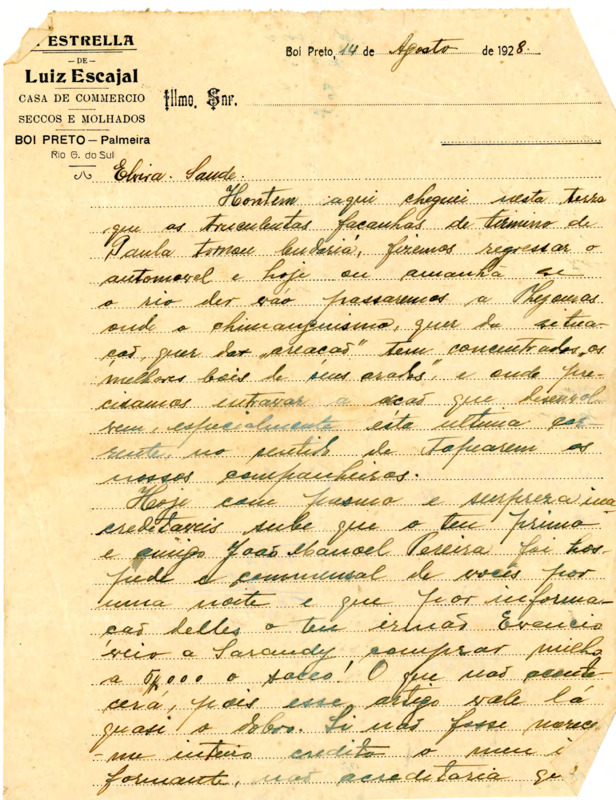 ESTRELLA
— DE —
Luiz Escajal
CASA DE COMMERCIO
SECCOS E MOLHADOS
BOI PRETO — Palmeira
Rio G. do Sul
Boi Preto, 14 de Agosto de 1928.
Illmo. Snr.
Elvira. Saude.
Hontem aqui cheguei nesta terra
que as truculentas façanhas de Firmino de
Paula tornou lendaria, fizemos regressar o
automovel e hoje ou amanhã se
o rio der váo passaremos a
onde o chimanguismo, quer da situa-
caō, quer da "areacaō" tem concentrados "os
melhores bois de seus arados", e onde pre-
cisamos entravar a acaō que desenvol-
vem, especialmente esta ultima cor-
rente, no sentido de os
nossos companheiros.
Hoje com pasmo e surpreza ina-
creditaveis sube que o teu primo
e amigo Joaō Manoel Pereira foi hos-
pede e commensal de vocês por
uma noite e que por informa-
caō delles o teu irmaō
veio a Sarandy comprar milho
a 5,000 o sacco! O que naō aconte-
cera, pois esse artigo vale lá
quasi o dobro. Si naō fosse merec-
me inteiro credito o meu i
formante, naō acreditaria